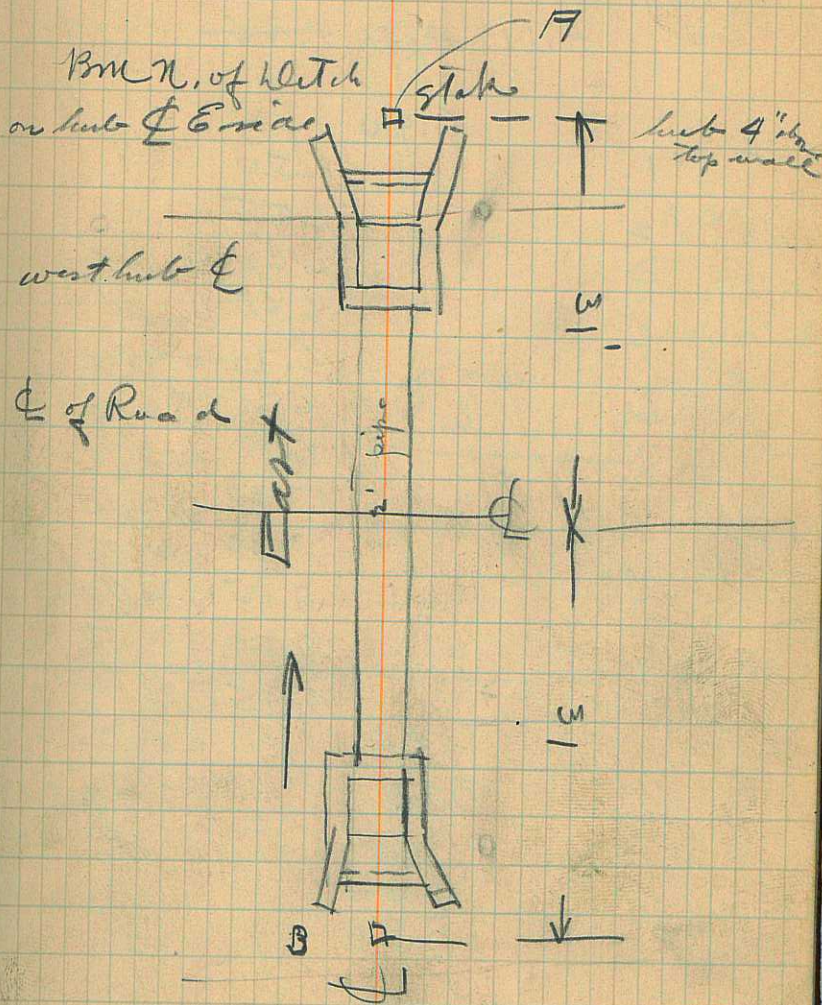 A
BM N. of Ditch
on hub ℄ E side
stake
hub 4" abv
top wall
west hub ℄
℄ of Road
East
2' pipe
℄
B
℄